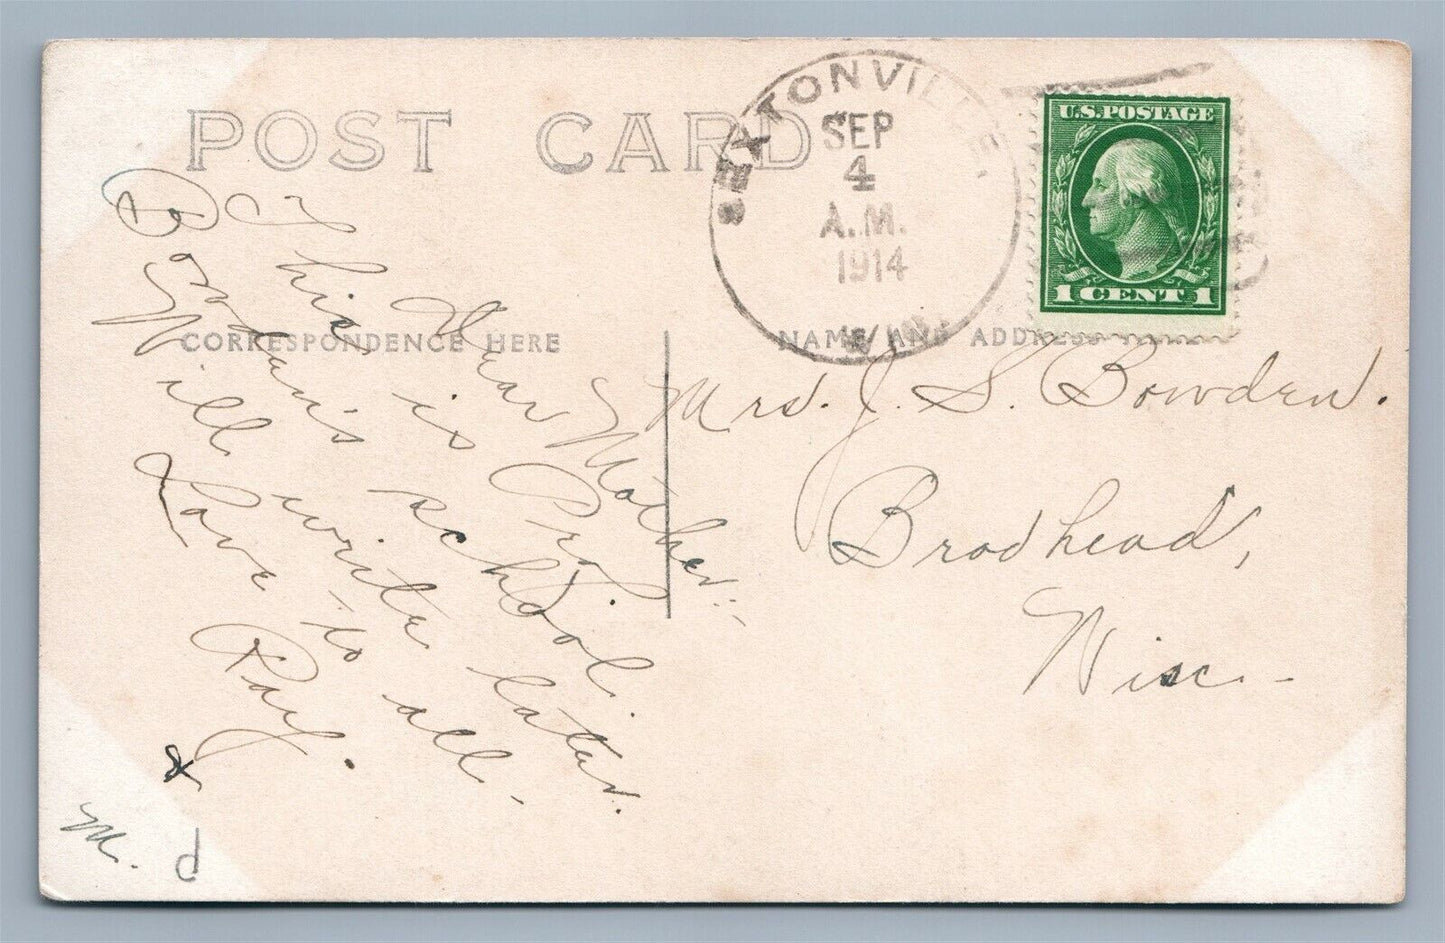 POST CARD
CORRESPONDENCE HERE
NAME AND ADDRESS
SEXTONVILLE,
SEP
4
A.M.
1914
WIS.
U.S. POSTAGE
1 CENT 1
Dear Mother:
This is Prof
Bowden's school.
Will write later.
Love to all.
Ray.
&
M.
Mrs. J. S. Bowden.
Brodhead,
Wisc.